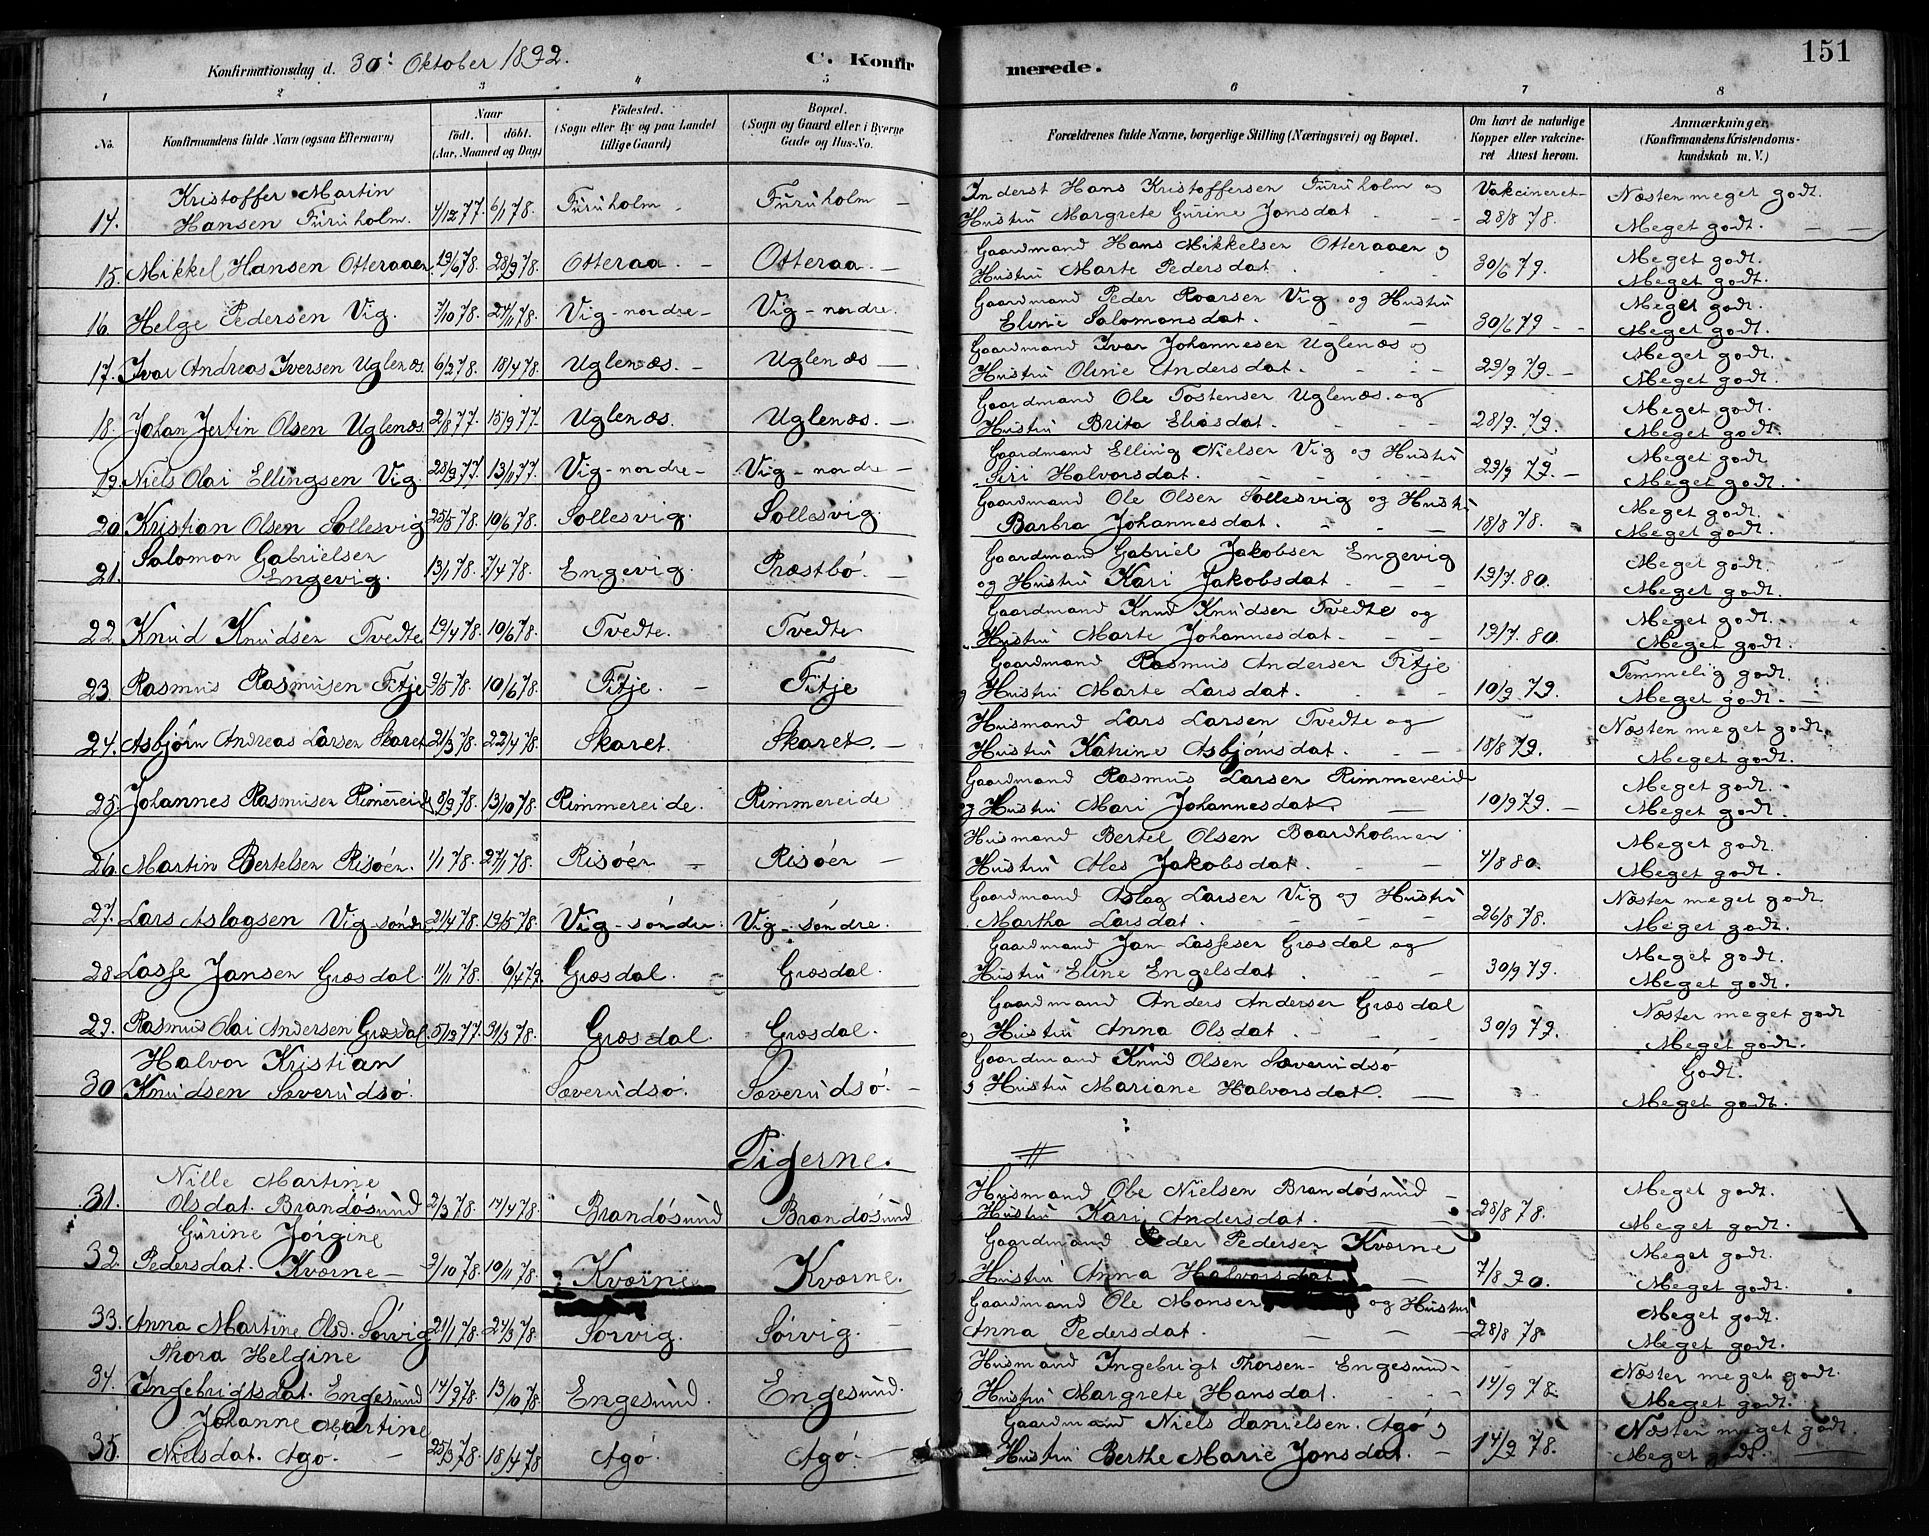 Konfirmationsdag d. 30' Oktober 1892. C. Konfir merede. 151
1 2 3 4 5 6 7 8
No. Konfirmandens fulde Navn (ogsaa Efternavn) Naar födt. döbt. (Aar, Maaned og Dag) Födested. (Sogn eller By og paa Landet tillige Gaard) Bopæl. (Sogn og Gaard eller i Byerne Gade og Hus-No. Forældrenes fulde Navne, borgerlige Stilling (Næringsvei) og Bopæl. Om havt de naturlige Kopper eller vakcineret Attest herom. Anmærkninger (Konfirmandens Kristendomskundskab m. V.)
14. Kristoffer Martin Hansen Furuholm. 4/12 77. 6/1 78. Furuholm Furuholm Inderst Hans Kristoffersen Furuholm og Hustru Margrete Gurine Jonsdat Vakcineret 28/8 78. Næsten meget godt. Meget godt.
15. Mikkel Hansen Otteraaen 19/6 78. 28/9 78. Otteraa. Otteraa. Gaardmand Hans Mikkelsen Otteraaen og Hustru Marte Pedersdat 30/6 79. Meget godt. Meget godt.
16. Helge Pedersen Vig. 7/10 78. 24/11 78. Vig-nordre Vig-nordre. Gaardmand Peder Roarsen Vig og Hustru Eline Salomonsdat. 30/6 79 Meget godt. Meget godt.
17. Ivar Andreas Iversen Uglenæs. 6/2 78. 18/4 78. Uglenæs. Uglenæs Gaardmand Ivar Johannesen Uglenæs og Hustru Oline Andersdat. 29/9 79. Meget godt. Meget godt.
18. Johan Jertin Olsen Uglenæs 2/8 77. 15/9 77. Uglenæs. Uglenæs. Gaardmand Ole Tostensen Uglenæs og Hustru Brita Eliasdat. 28/9. 79. Meget godt. Meget godt.
19. Niels Olai Ellingsen Vig. 28/9 77. 13/11 77. Vig-nordre Vig-nordre Gaardmand Elling Nielsen Vig og Hustru Siri Halvorsdat. 29/9 79. Meget godt Meget godt.
20. Kristian Olsen Sollesvig 25/5 78. 10/6 78. Sollesvig. Sollesvig. Gaardmand Ole Olsen Sollesvig og Hustru Barbra Johannesdat. 18/8 78. Meget godt. Meget godt.
21. Salomon Gabrielsen Engevig. 13/1 78. 7/4 78. Engevig. Præstbö. Gaardmand Gabriel Jakobsen Engevig og Hustru Kari Jakobsdat. 19/7. 80. Meget godt. Meget godt.
22. Knud Knudsen Tvedte 19/4 78. 10/6 78. Tvedte. Tvedte Gaardmand Knud Knudsen Tvedte og Hustru Marte Johannesdat. 19/7. 80. Meget godt. Meget godt.
23. Rasmus Rasmusen Fitje 9/5 78. 10/6 78. Fitje. Fitje Gaardmand Rasmus Andersen Fitje Hustru Marte Larsdat. 10/9 79. Temmelig godt. Meget godt.
24. Asbjørn Andreas Larsen Skaret 21/3 78. 22/4 78. Skaret. Skaret. Husmand Lars Larsen Tvedte og Hustru Katrine Asbjørnsdat. 18/8 79. Næsten meget godt. Meget godt.
25. Johannes Rasmusen Rimereide 8/9 78. 13/10 78. Rimmereide. Rimmereide Gaardmand Rasmus Larsen Rimmereide og Hustru Mari Johannesdat. 10/9 79. Meget godt. Meget godt.
26. Martin Bertelsen Risöen. 1/1 78. 27/1 78. Risöen Risöen Husmand Bertel Olsen Baardholmen Hustru Ales Jakobsdat. 4/8 80. Meget godt. Meget godt.
27. Lars Aslagsen Vig söndr 21/4 78. 19/5 78. Vig-söndre. Vig-söndre. Gaardmand Aslag Larsen Vig og Hustru Martha Larsdat. 26/8 78. Næsten meget godt Meget godt.
28. Lasse Jansen Græsdal. 11/11 78. 6/4 79. Græsdal. Græsdal. Gaardmand Jan Lassesen Græsdal og Hustru Eline Engelsdat 30/9 79. Meget godt. Meget godt.
29. Rasmus Olai Andersen Græsdal. 5/12 77. 31/3 78. Græsdal. Græsdal. Gaardmand Anders Andersen Græsdal Hustru Anna Olsdat 30/9 79. Næsten meget godt Meget godt.
30 Halvor Kristian Knudsen Sæverudsö. Sæverudsö. Sæverudsö. Gaardmand Knud Olsen Sæverudsö Hustru Mariane Halvorsdat. Godt. Meget godt.
Pigerne.
31. Nille Martine Olsdat. Brandösund 2/3 78. 14/4 78. Brandösund Brandösund Husmand Ole Nielsen Brandösund Hustru Kari Andersdat. 28/8 78. Meget godt. Meget godt.
32. Gurine Jørgine Pedersdat. Kværne 3/10 78. 10/11 78. Kværne Kværne. Gaardmand Peder Pedersen Kværne Hustru Anna Halvorsdat 7/8 90. Meget godt. Meget godt.
33. Anna Martine Olsd. Sörvig 21/1 78. 24/3 78. Sörvig. Sörvig. Gaardmand Ole Monsen og Hustru Anna Pedersdat. 28/8 78 Meget godt. Meget godt.
34. Thora Helgine Ingebrigtsdat. Engesund 14/9 78. 13/10 78. Engesund. Engesund. Husmand Ingebrigt Thorsen Engesund Hustru Margrete Hansdat. 14/9 78. Næsten meget godt. Meget godt.
35. Johanne Martine Nielsdat. Agö. 25/3 78. 18/4 78 Agö. Agö. Gaardmand Niels Danielsen. Agö Hustru Berthe Marie Jonsdat. 14/9 78. Næsten meget godt. Meget godt.